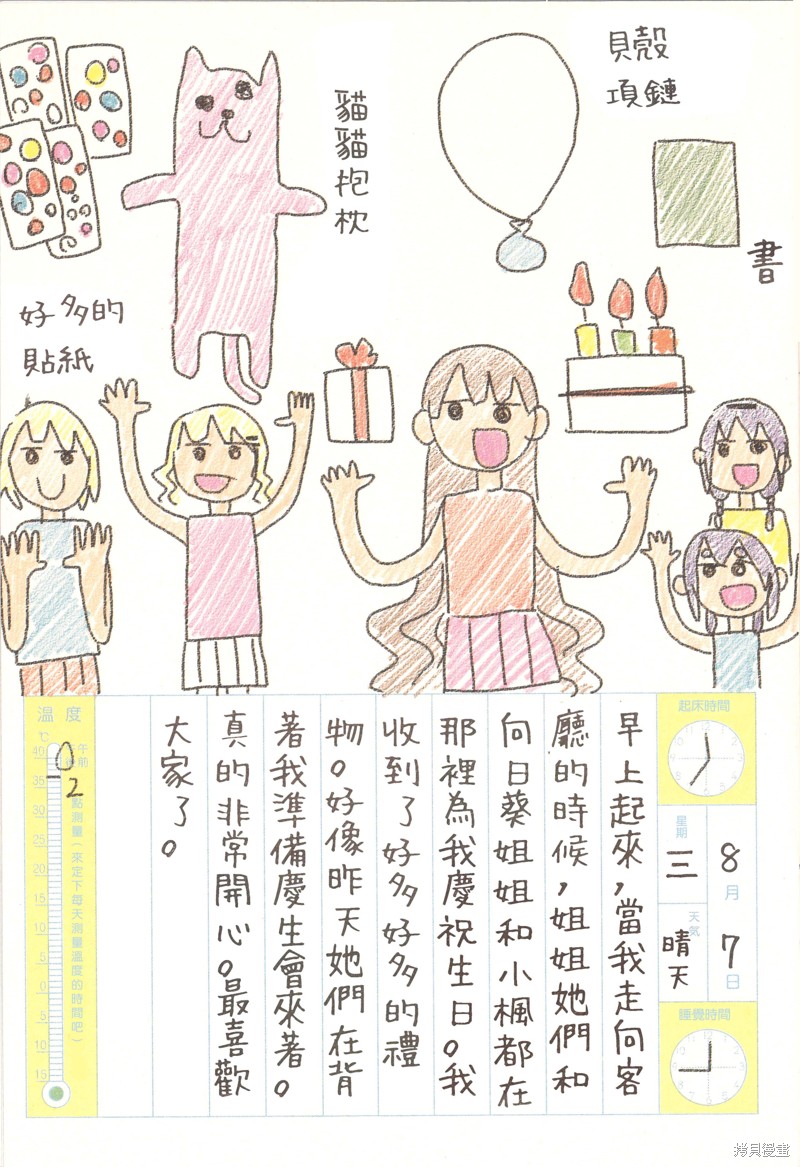 貝殼
項鏈
貓貓抱枕
書
好多的
貼紙
起床時間
星期
三
8月
7日
天気
晴天
睡覺時間
早上起來，當我走向客
廳的時候，姐姐她們和
向日葵姐姐和小楓都在
那裡為我慶祝生日。我
收到了好多好多的禮
物。好像昨天她們在背
著我準備慶生會來著。
真的非常開心。最喜歡
大家了。
温度
℃
40
35
30
25
20
15
10
5
0
5
10
15
點測量（來定下每天測量溫度的時間吧）
拷貝漫畫